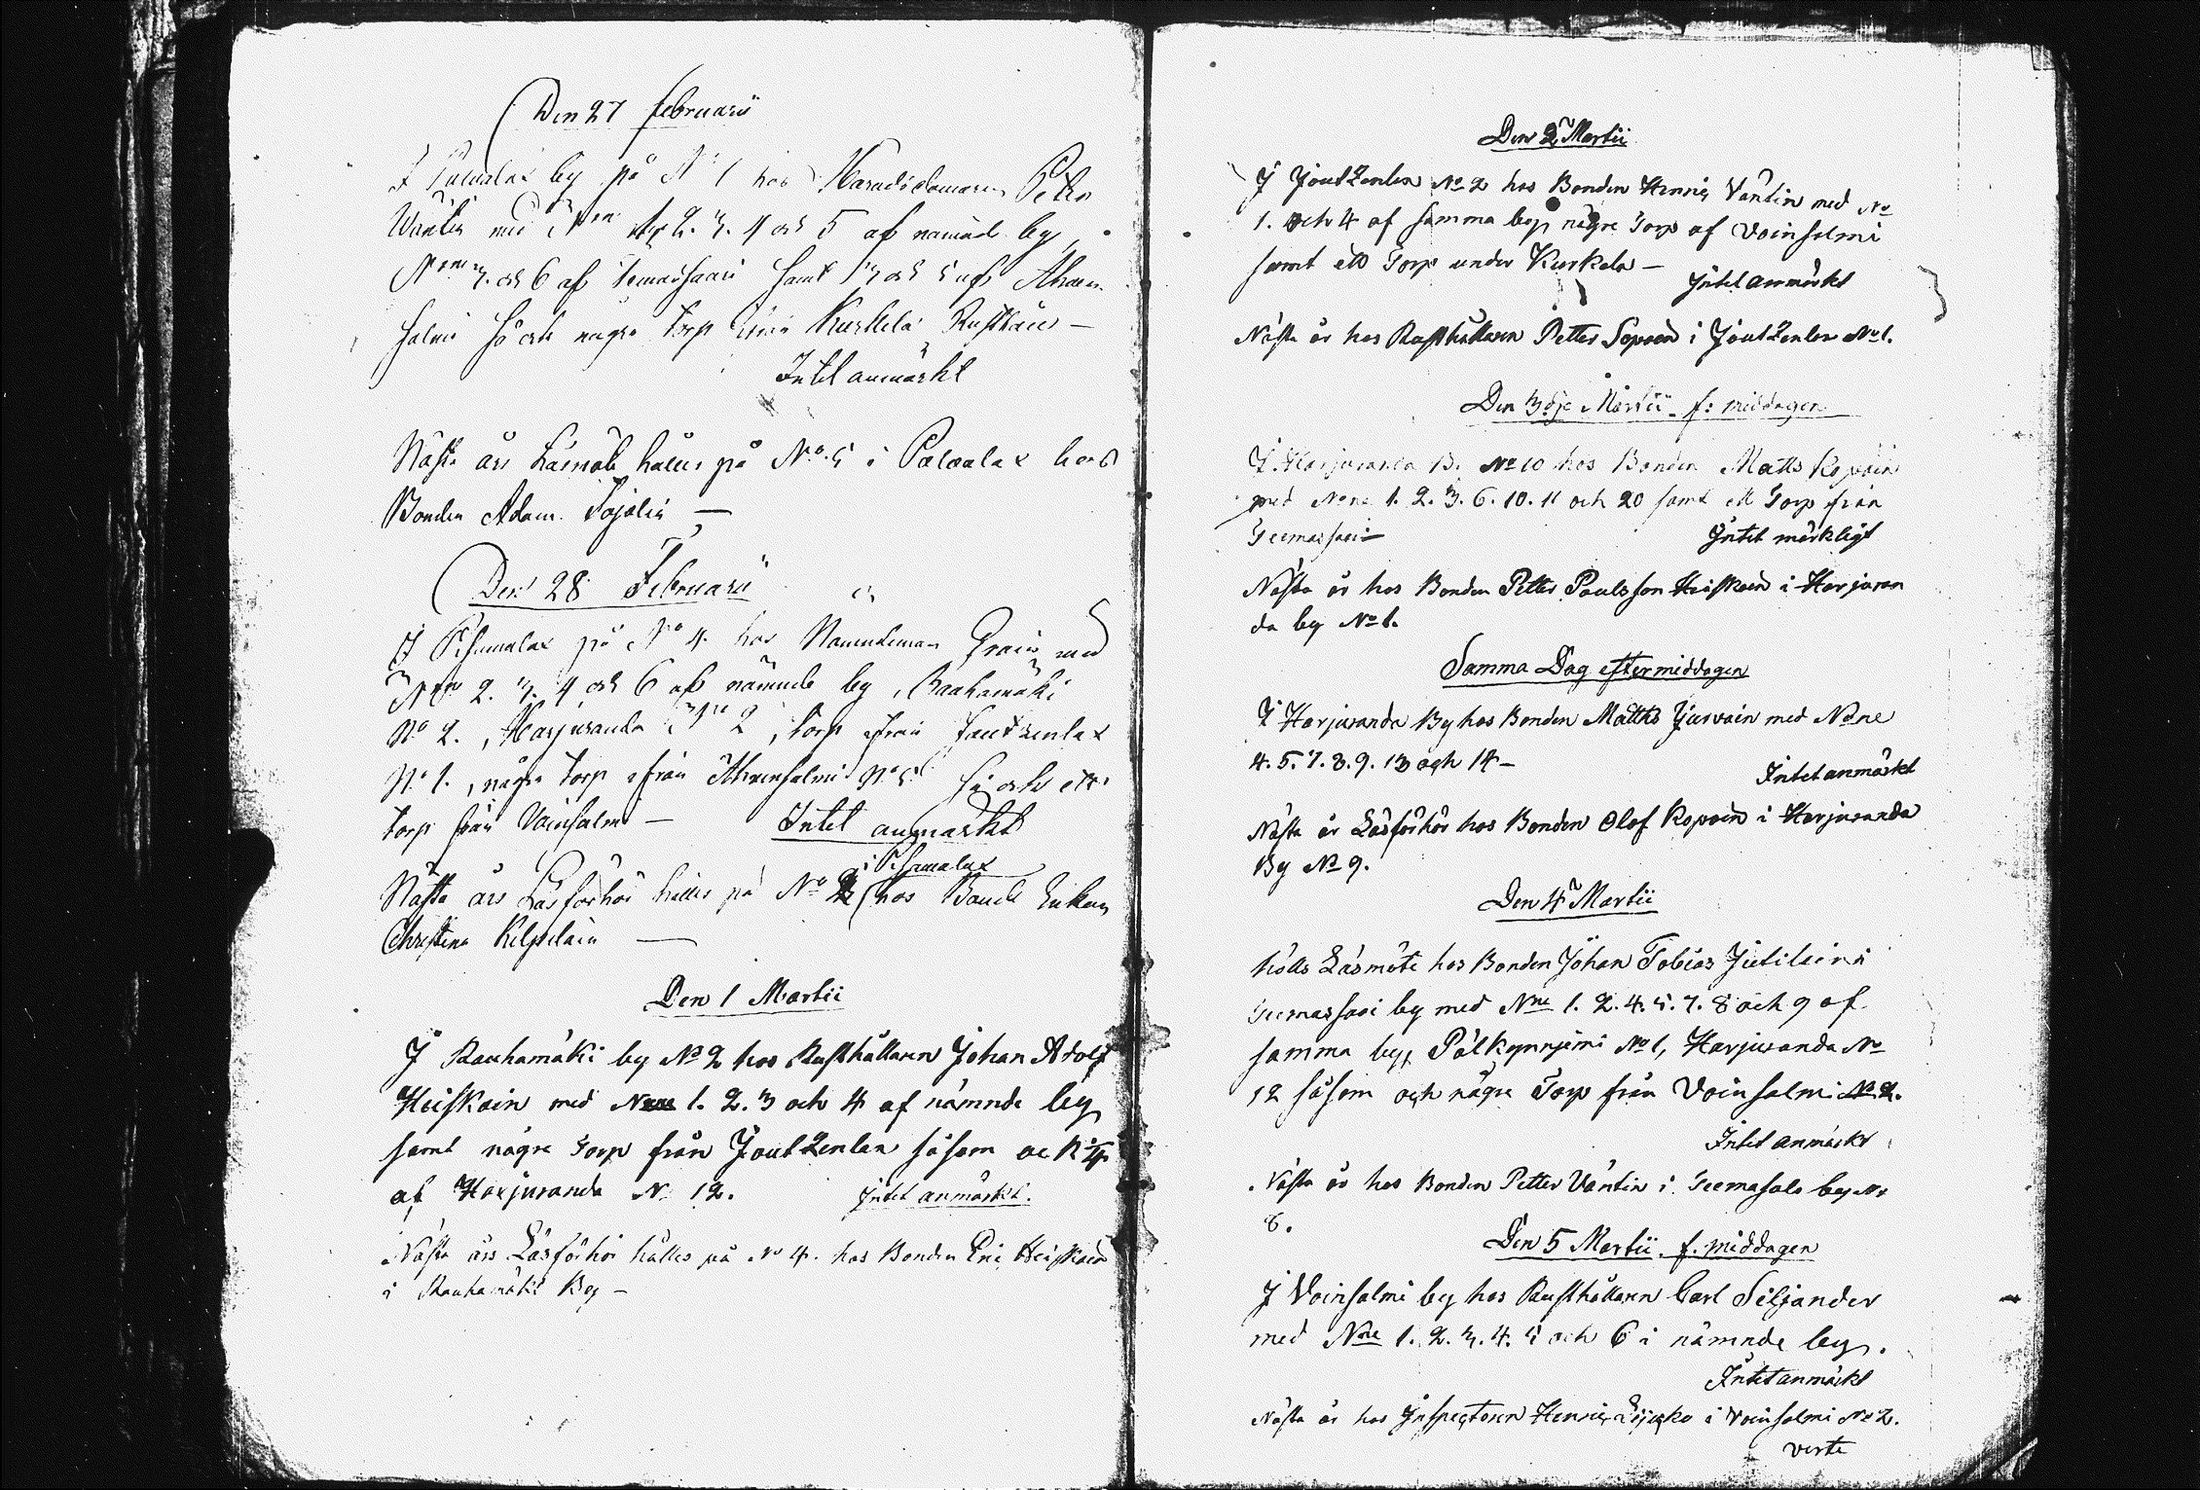 Den 27 februarii
I by på No 1 hos Petter
Wäntin med Nrne 1. 2. 3. 4 och 5 af nämnde by,
Nrne 3. och 6 af samt 3 och 5 af Ahven
salmi så ock några torp Kurkela Rusthåll –
Intet anmärkt
Nästa års Läsmöte hålles på No 5 i Palvalax hos
Bonden Adam –
Den 28 Februarii
I Pihamalax på No 4. hos Nämndeman med
Nrne 2. 3. 4 och 6 af nämnde by, Rauhamäki
No 2., Harjuranda No 2, torp ifrån Joutzenlax
No 1., några torp ifrån Ahvensalmi No 5 så ock ett
torp från Voinsalmi – Intet anmärkt
i Pihamalax
Nästa års Läsförhör hålles på No 2 hos Bonde Enkan
Christina Kilpelain –
Den 1 Martii
I Rauhamäki by No 2 hos Rusthållaren Johan Adolf
Heiskain med Nrne 1. 2. 3 och 4 af nämnde by
samt någre Torp från Joutzenlax såsom ock
af Harjuranda No 12. Intet anmärkt.
Nästa års Läsförhör hålles på No 4. hos Bonden Eric Heiskain
i Rauhamäki By –
Den 2 Martii
I Joutzenlax No 2 hos Bonden Henric Väntin med No
1. och 4 af samma by, någre Torp af Voinsalmi
samt ett Torp under Kurkela –
Intet anmärkt
Nästa år hos Rusthållaren Petter Sopain i Joutzenlax No 1.
Den 3dje Martii f: middagen
I Harjuranda B. No 10 hos Bonden Matts Kopoin
med Nrne 1. 2. 3. 6. 10. 11 och 20 samt ett Torp från
Teemassari –
Intet märkligt
Nästa år hos Bonden Petter Paulsson Heiskain i Harjuran
da by No 1.
Samma Dag eftermiddagen
I Harjuranda By hos Bonden Matths Jurvain med Nrne
4. 5. 7. 8. 9. 13 och 14 –
Intet anmärkt
Nästa år Läsförhör hos Bonden Olof Kopoin i Harjuranda
By No 9.
Den 4 Martii
hölls Läsmöte hos Bonden Johan Tobias Jutilain i
Teemassari by med Nrne 1. 2. 4. 5. 7. 8 och 9 af
samma by, Pölkynnjemi No 1, Harjuranda No
12 såsom och någre Torp från Voinsalmi No 2.
Intet anmärkt
Nästa år hos Bonden Petter Väntin i Teemasalo by No
6.
Den 5 Martii f. middagen
I Voinsalmi by hos Rusthållaren Carl Siljander
med Nrne 1. 2. 3. 4. 5 och 6 i nämnde by.
Intet anmärkt
Nästa år hos Inspectoren Henric i Voinsalmi No 2.
verte